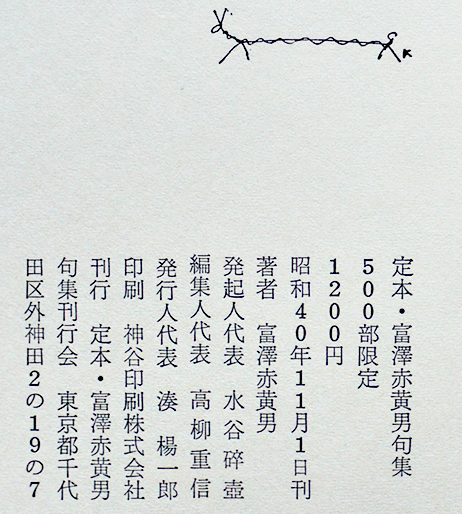 定本・富澤赤黄男句集
500部限定
1200円
昭和40年11月1日刊
著者 富澤赤黄男
発起人代表 水谷砕壺
編集人代表 高柳重信
発行人代表 湊 楊一郎
印刷 神谷印刷株式会社
刊行 定本・富澤赤黄男
句集刊行会 東京都千代
田区外神田2の19の7